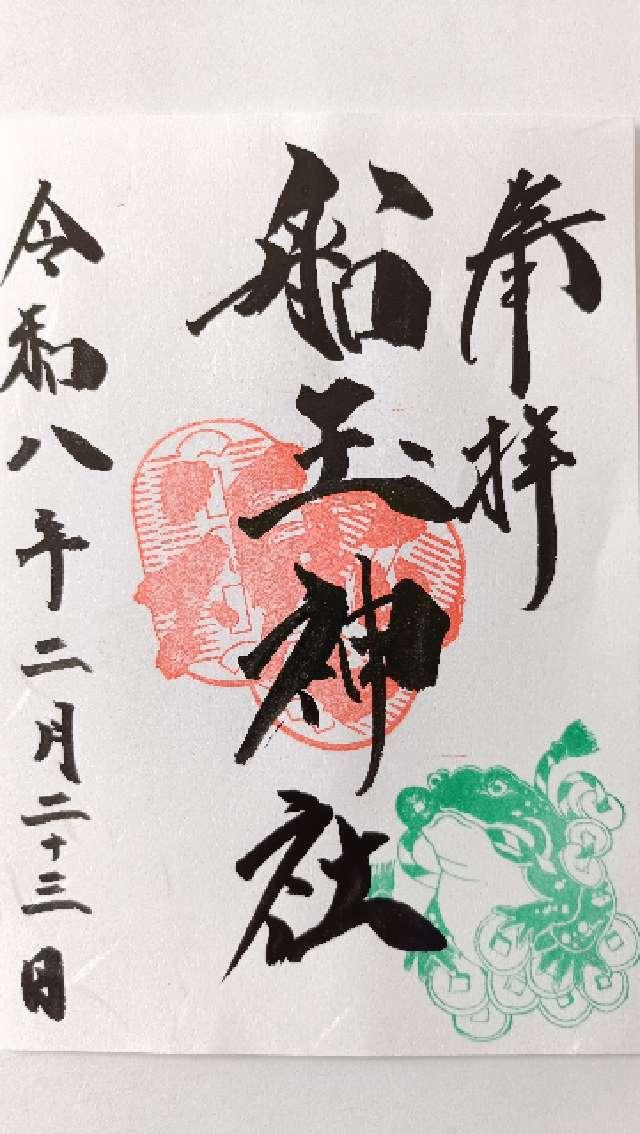 奉拝
船玉神社
令和八年二月二十三日